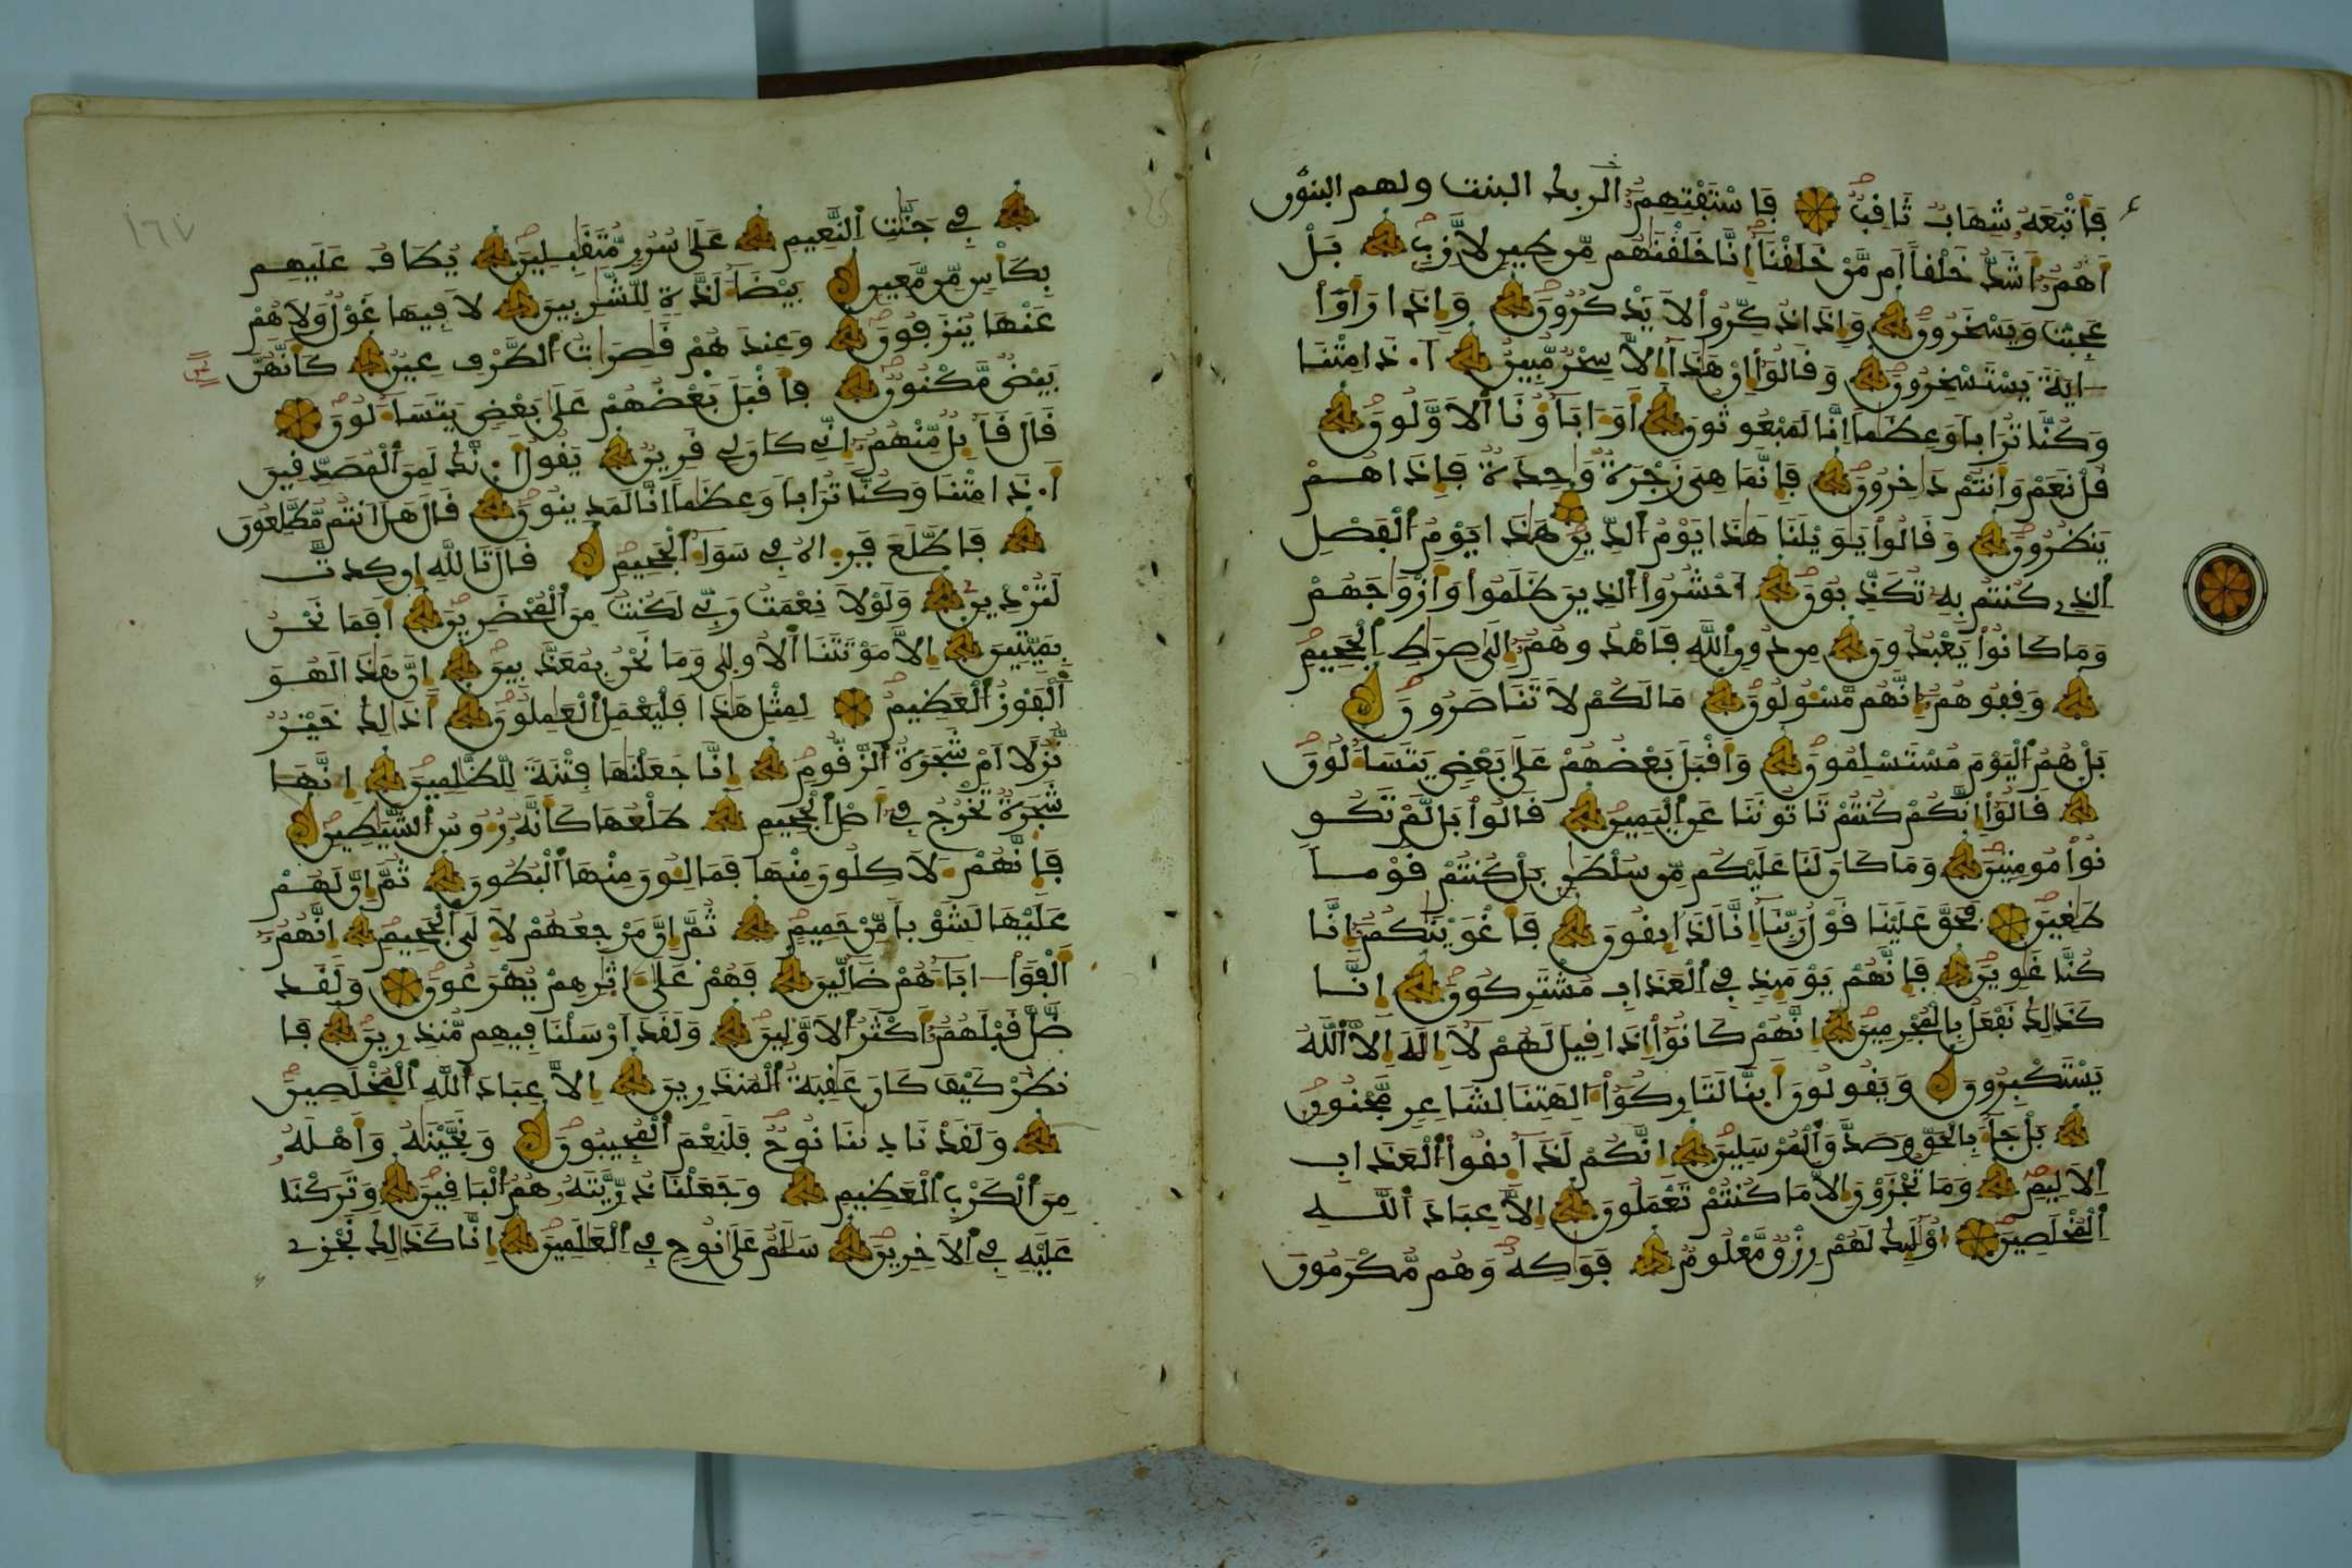 فاتبعه شهاب ثاقب فاستفتهم الربك البنت ولهم البنون
اهم اشد خلقا ام من خلقنا انا خلقنهم من طين لازب بل
عجبت ويسخرون واذا ذكروا لا يذكرون واذا راوا
ءاية يستسخرون وقالوا ان هذا الا سحر مبين أ.ذا متنا
وكنا ترابا وعظما انا لمبعوثون او ءاباؤنا الاولون
قل نعم وانتم داخرون فانما هى زجرة واحدة فاذا هم
ينظرون وقالوا يويلنا هذا يوم الدين هذا يوم الفصل
الذى كنتم به تكذبون احشروا الذين ظلموا وازواجهم
وما كانوا يعبدون من دون الله فاهدوهم الى صرط الجحيم
وقفوهم انهم مسولون ما لكم لا تناصرون
بل هم اليوم مستسلمون واقبل بعضهم على بعض يتساءلون
قالوا انكم كنتم تاتوننا عن اليمين قالوا بل لم تكو
نوا مومنين وما كان لنا عليكم من سلطن بل كنتم قوما
طغين فحق علينا قول ربنا انا لذايقون فاغوينكم انا
كنا غوين فانهم يوميذ فى العذاب مشتركون انا
كذالك نفعل بالمجرمين انهم كانوا اذا قيل لهم لا اله الا الله
يستكبرون ويقولون اينا لتاركوا ءالهتنا لشاعر مجنون
بل جاء بالحق وصدق المرسلين انكم لذايقوا العذاب
الاليم وما تجزون الا ما كنتم تعملون الا عباد الله
المخلصين اوليك لهم رزق معلوم فوكه وهم مكرمون
١٦٧
فى جنت النعيم على سرر متقبلين يطاف عليهم
بكاس من معين بيضاء لذة للشربين لا فيها غول ولا هم
عنها ينزفون وعندهم قصرات الطرف عين كانهن
بيض مكنون فاقبل بعضهم على بعض يتساءلون
قال قايل منهم انى كان لى قرين يقول أ.نك لمن المصدقين
أ.ذا متنا وكنا ترابا وعظما انا لمدينون قال هل انتم مطلعون
فاطلع فرءاه فى سواء الجحيم قال تالله ان كدت
لتردين ولولا نعمت ربى لكنت من المحضرين افما نحن
بميتين الا موتتنا الاولى وما نحن بمعذبين ان هذا لهو
الفوز العظيم لمثل هذا فليعمل العملون اذالك خير
نزلا ام شجرة الزقوم انا جعلنها فتنة للظلمين انها
شجرة تخرج فى اصل الجحيم طلعها كانه رءوس الشيطين
فانهم لاكلون منها فمالئون منها البطون ثم ان لهم
عليها لشوبا من حميم ثم ان مرجعهم لالى الجحيم انهم
الفوا ءاباءهم ضالين فهم على ءاثرهم يهرعون ولقد
ضل قبلهم اكثر الاولين ولقد ارسلنا فيهم منذرين فا
نظر كيف كان عقبة المنذرين الا عباد الله المخلصين
ولقد نادينا نوح فلنعم المجيبون ونجينه واهله
من الكرب العظيم وجعلنا ذريته هم الباقين وتركنا
عليه فى الاخرين سلم على نوح فى العلمين انا كذالك نجزى